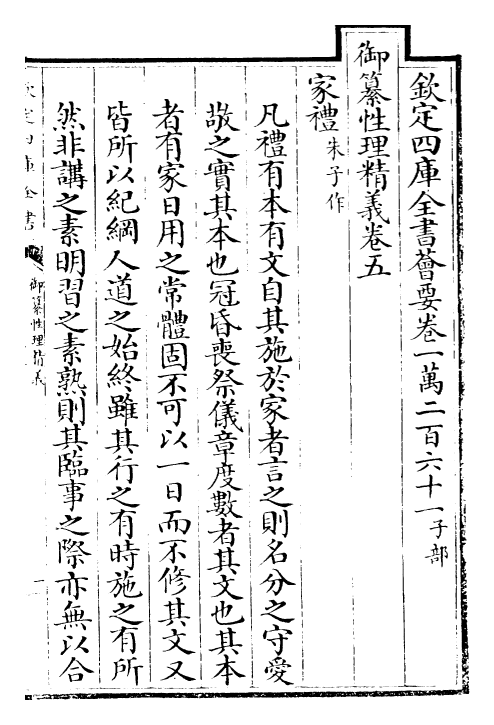 欽定四庫全書薈要卷一萬二百六十一子部
御纂性理精義卷五
家禮朱子作
凡禮有本有文自其施於家者言之則名分之守愛
敬之實其本也冠昏喪祭儀章度數者其文也其本
者有家日用之常體固不可以一日而不修其文又
皆所以紀綱人道之始終雖其行之有時施之有所
然非講之素明習之素熟則其臨事之際亦無以合
欽定四庫全書
御纂性理精義
一